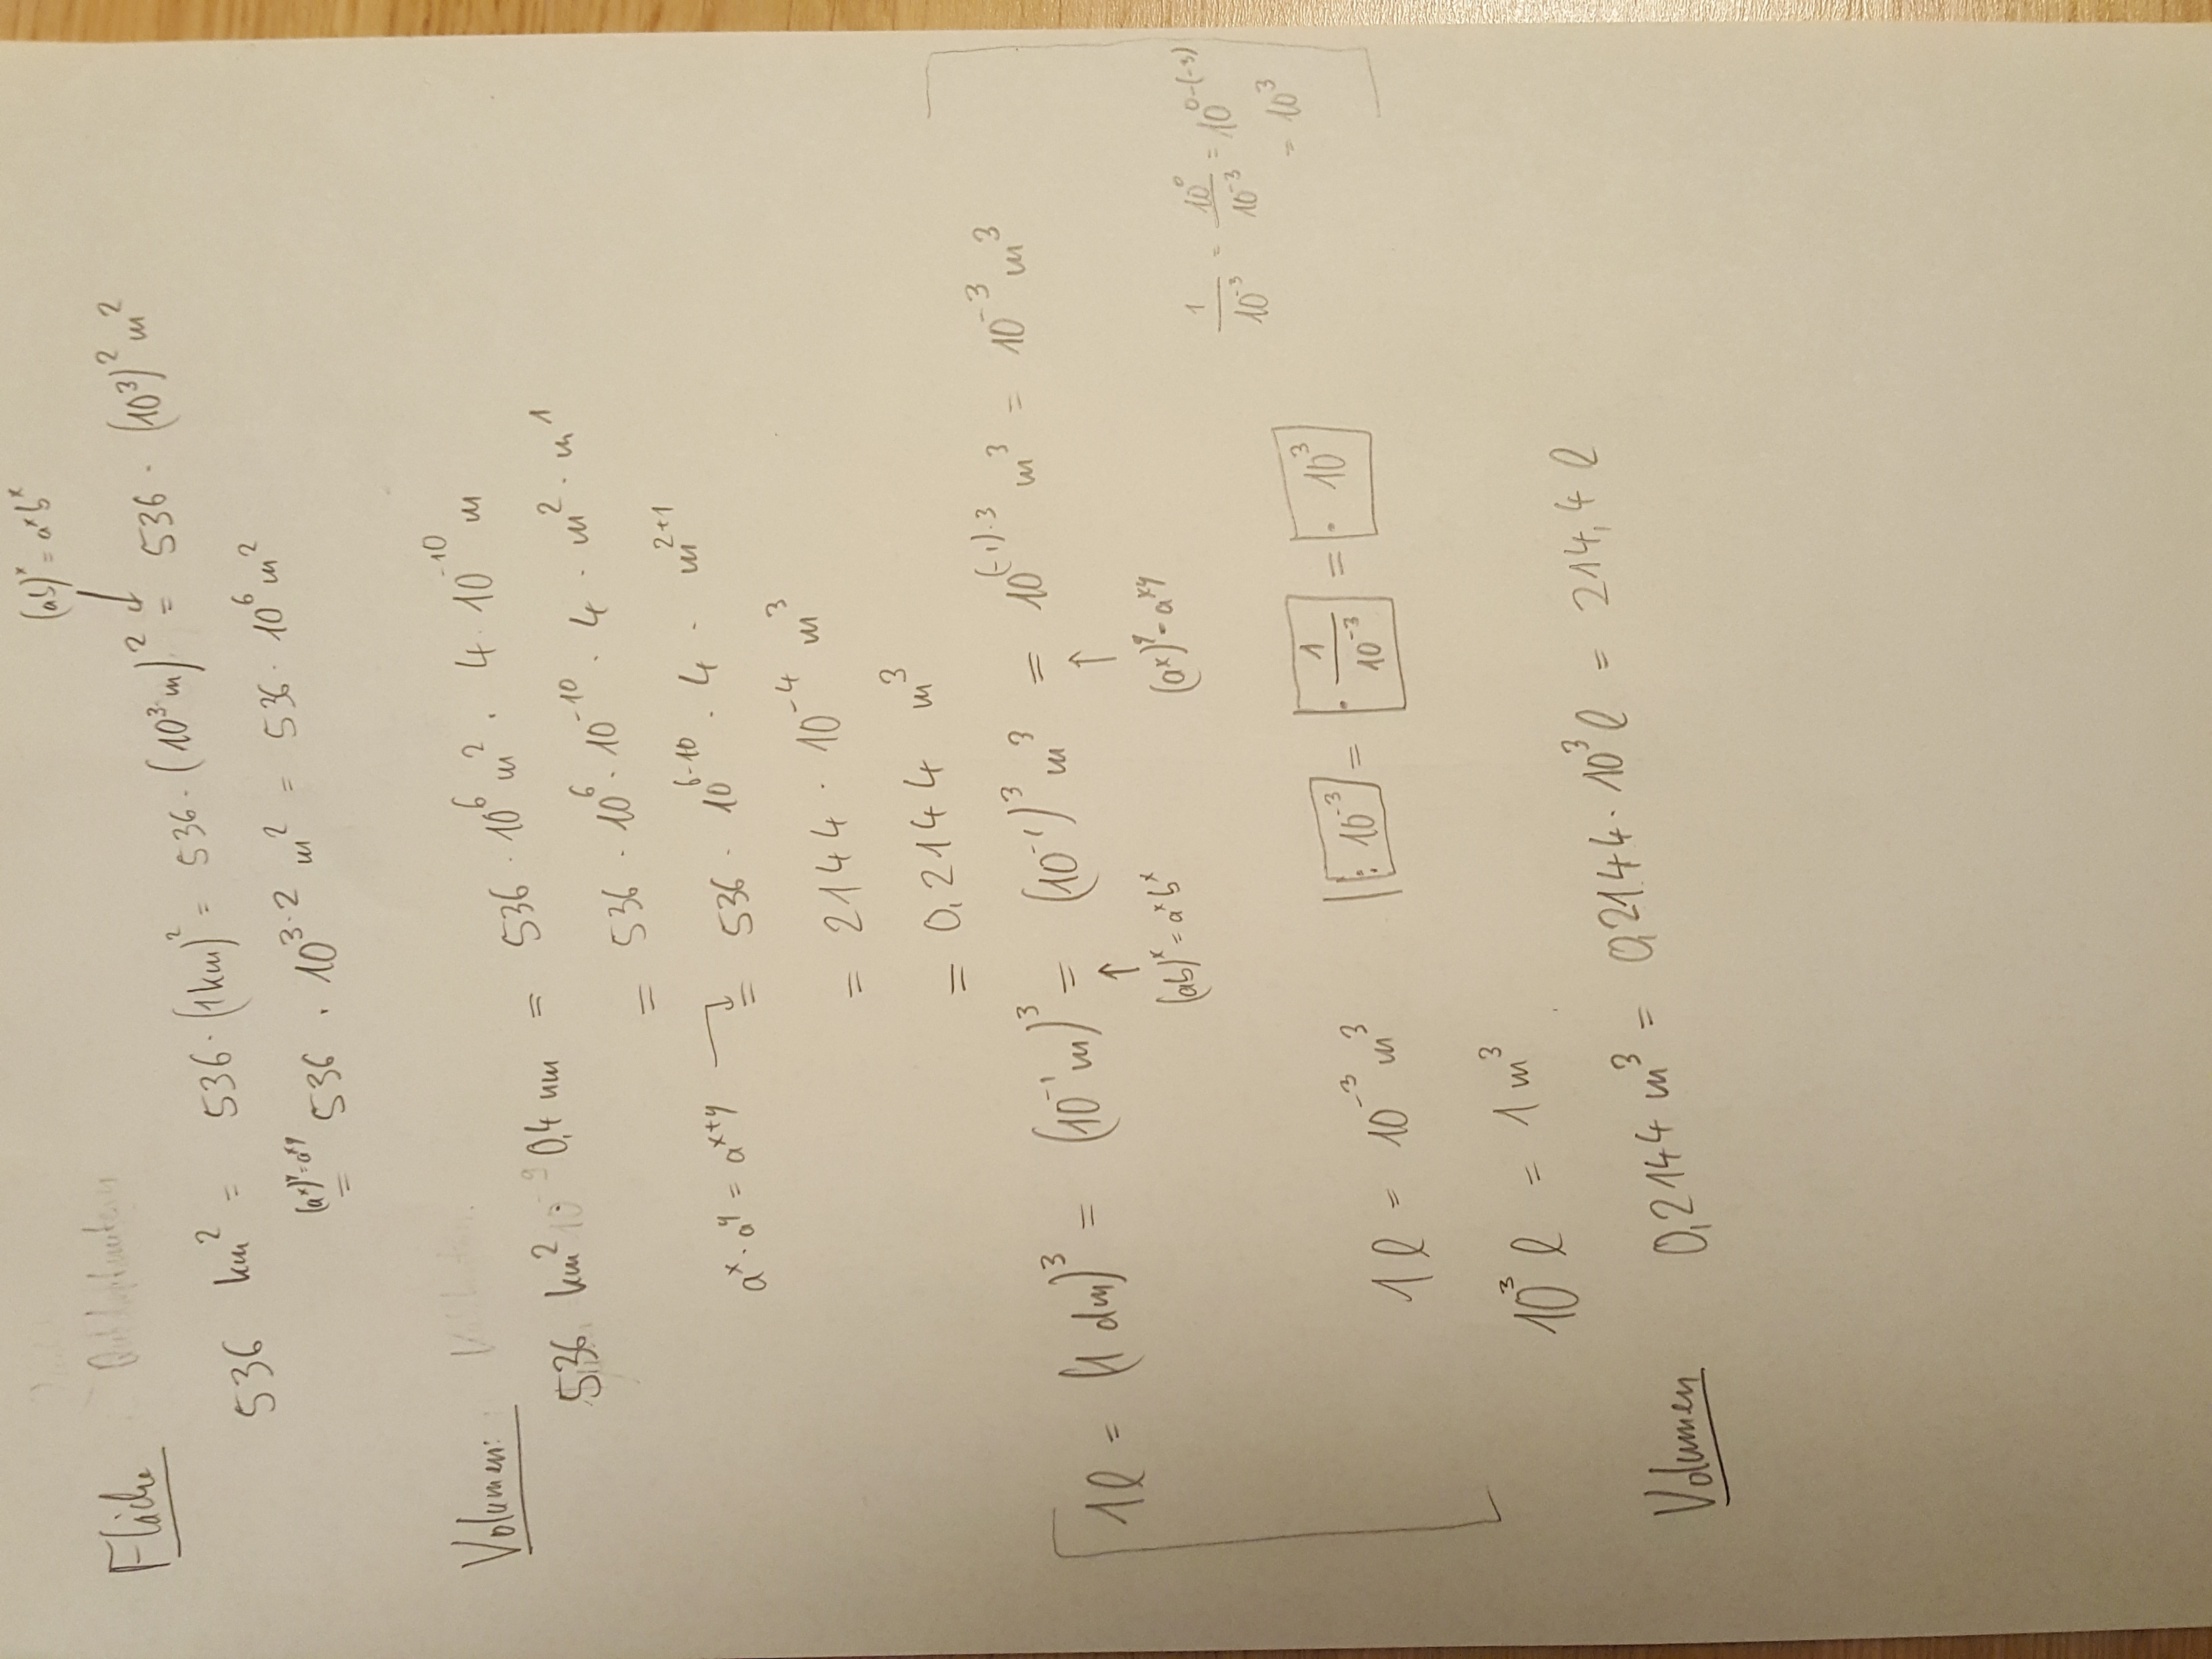 (ab)^x = a^x b^x
Fläche
536 km² = 536 · (1km)² = 536 · (10³ m)² = 536 · (10³)² m²
(a^x)^y = a^xy
= 536 · 10^3·2 m² = 536 · 10⁶ m²
Volumen:
536 km² · 0,4 nm = 536 · 10⁶ m² · 4 · 10^-10 m
= 536 · 10⁶ · 10^-10 · 4 · m² · m¹
a^x · a^y = a^x+y = 536 · 10^6-10 · 4 · m^2+1
= 2144 · 10^-4 m³
= 0,2144 m³
1l = (1 dm)³ = (10^-1 m)³ = (10^-1)³ m³ = 10^(-1)·3 m³ = 10^-3 m³
(ab)^x = a^x b^x (a^x)^y = a^xy
1/10^-3 = 10^0/10^-3 = 10^0-(-3)
= 10³
1 l = 10^-3 m³ |: 10^-3 = · 1/10^-3 = · 10³
10³ l = 1 m³
Volumen 0,2144 m³ = 0,2144 · 10³ l = 214,4 l